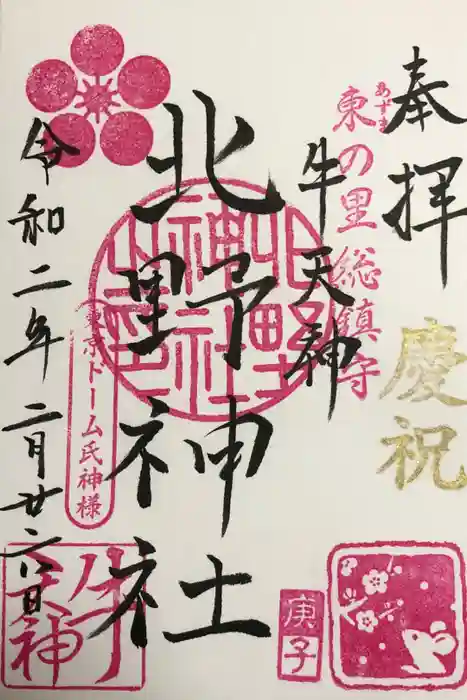 奉拝
慶祝
東の里総鎮守
あずま
牛天神
北野神社
北野神社
東京ドーム氏神様
令和二年二月廿六日
庚子
牛天神